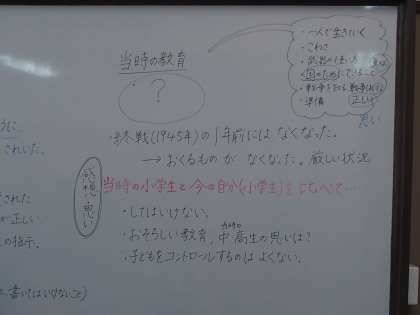 当時の教育
?
・一人で生きていく
・こわさ
・武器の使い方
・国のために
・準備
正しい
思い
・終戦(1945年)の1年前にはなくなった。
→おくるものがなくなった。厳しい状況
感想、思い
当時の小学生と今の自分(小学生)をくらべて…
・してはいけない。
・おそろしい教育。中・高生の思いは?
・子どもをコントロールするのはよくない。
うに
された
が正しい
の指示。
書いてはいけないこと)